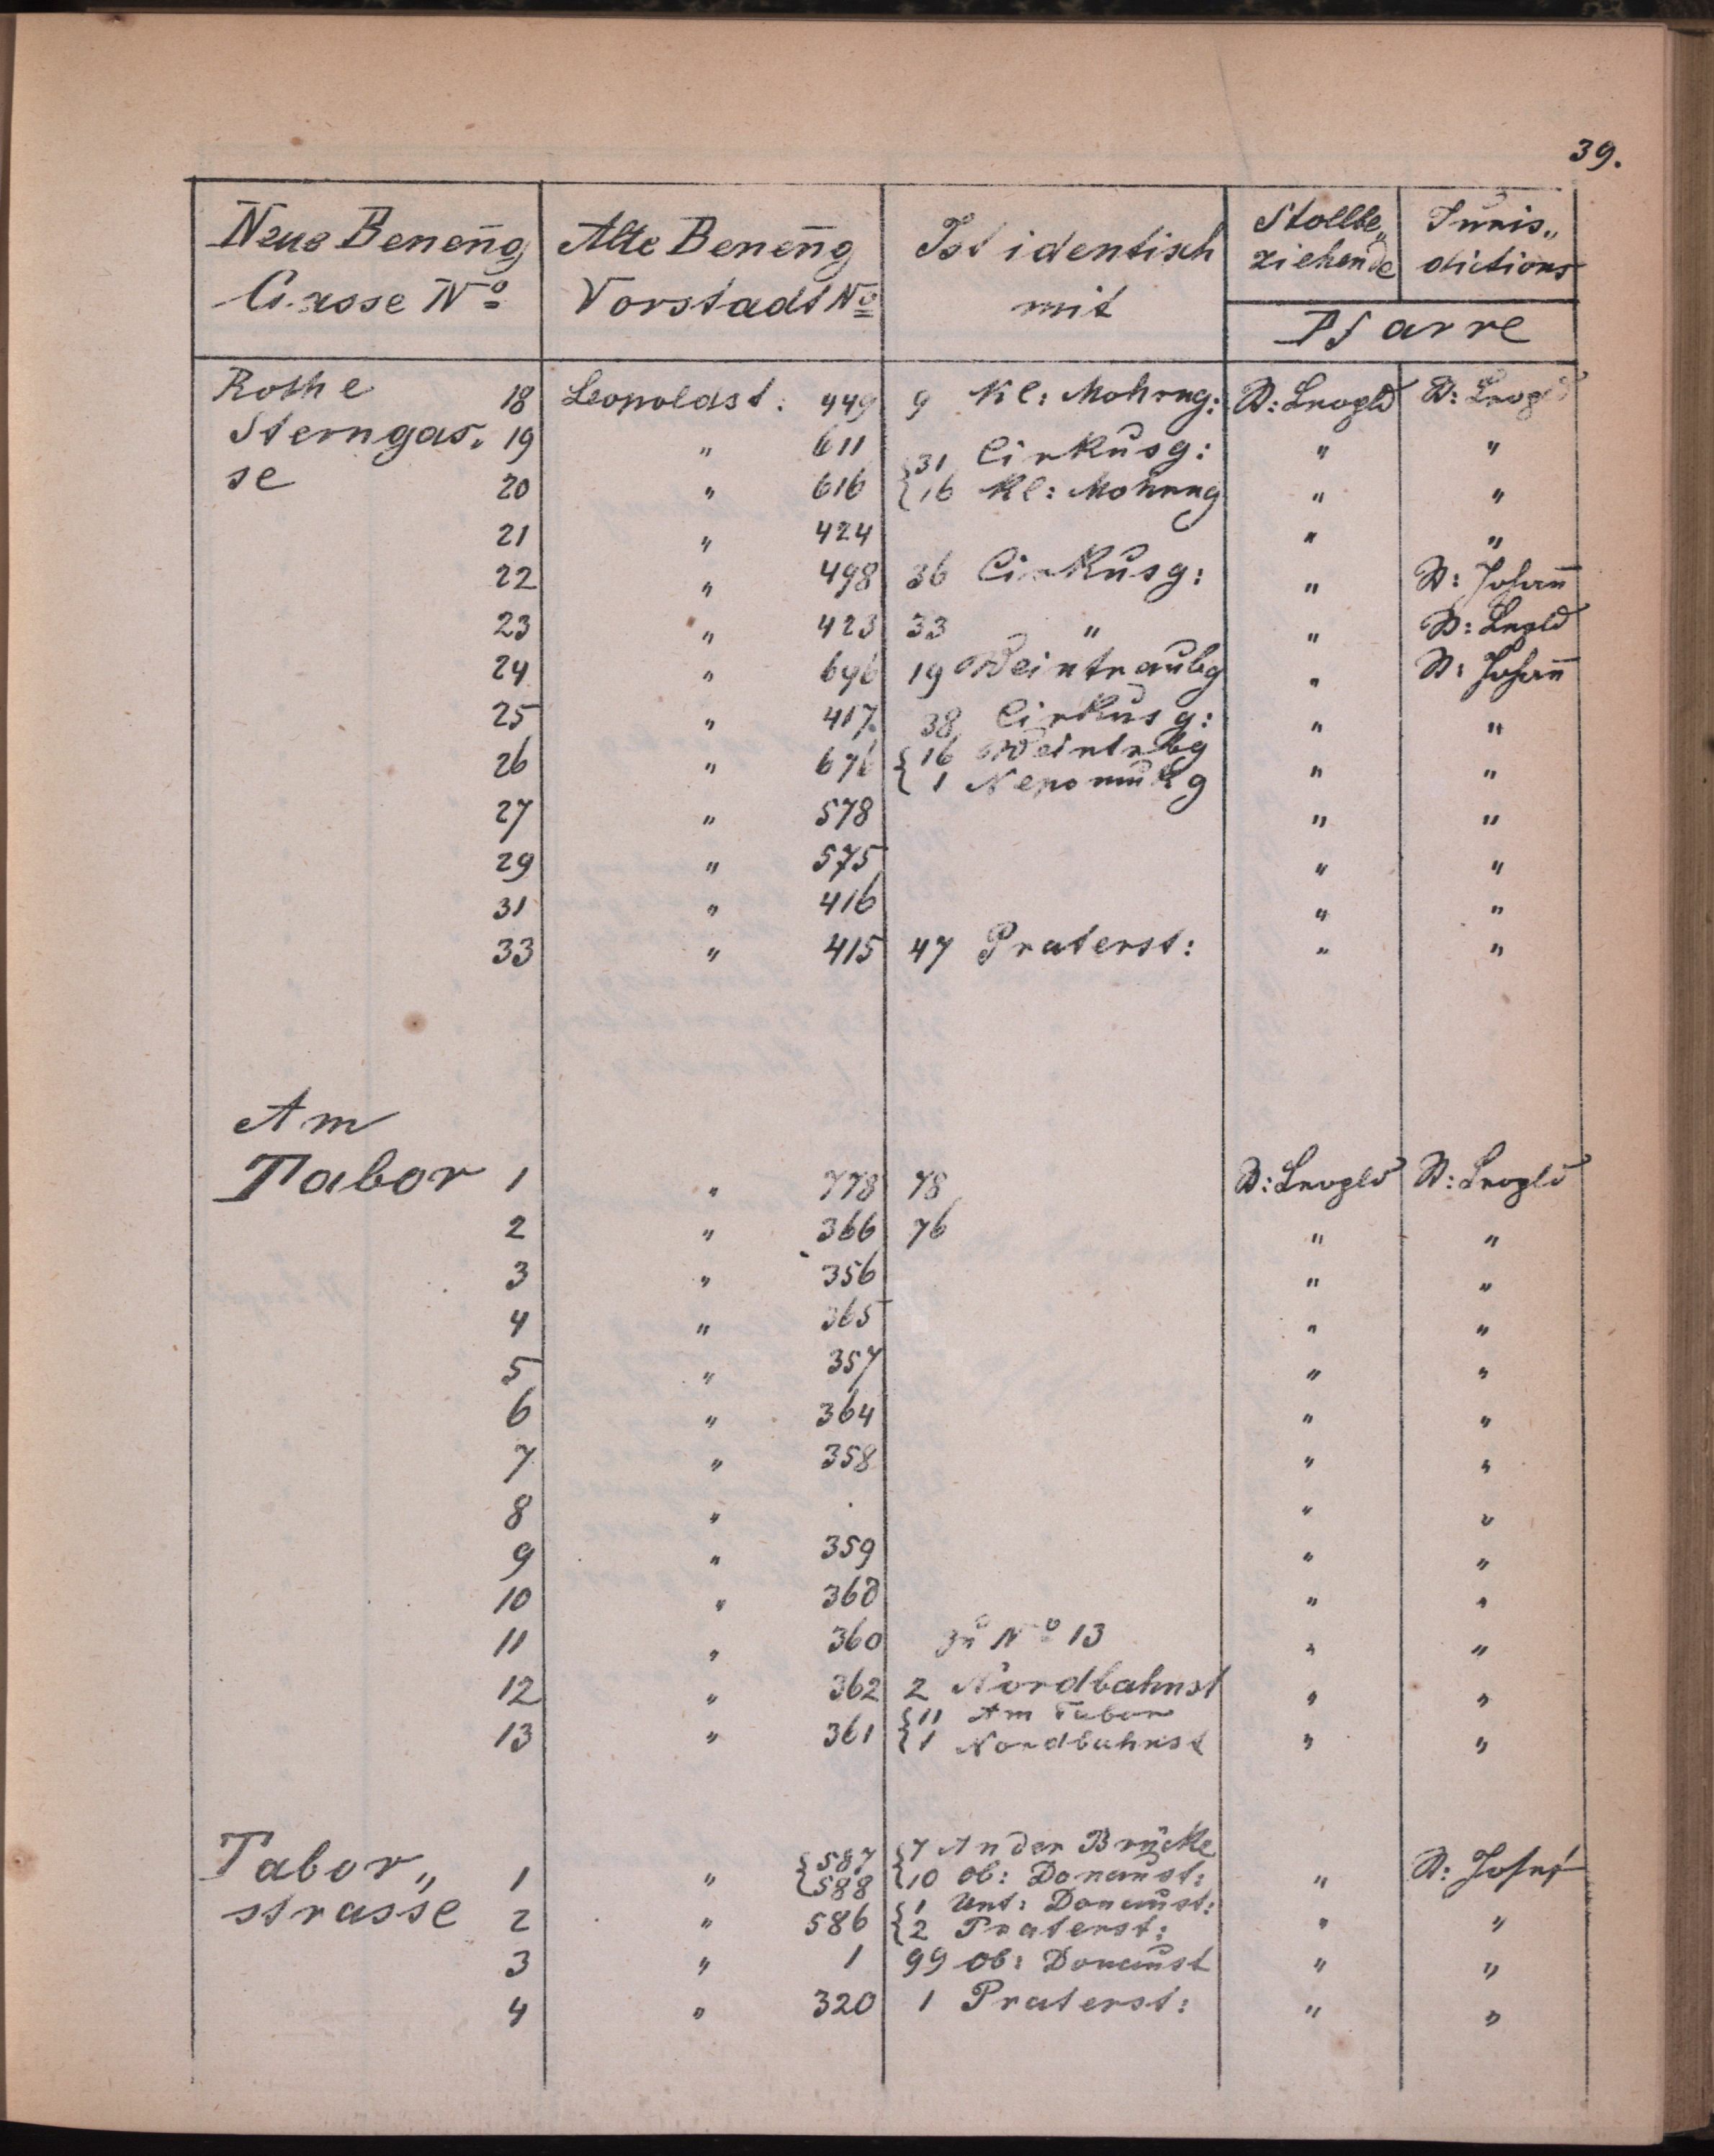 39.
Neue Beneñg Gasse Nº | Alte Beneñg Vorstadt Nº | Ist identisch mit | Stollbe„ziehende | Juris„dictions
Pfarre
Rothe 18 | Leopoldst: 449 | 9 Kl: Mohrng: | St: Leopld | St: Leopld
Sterngas- 19 | " 611 | {31 Cirkusg: | " | "
se 20 | " 616 | {16 Kl: Mohrng | " | "
21 | " 424 | | " | "
22 | " 498 | 36 Cirkusg: | " | St: Johañ
23 | " 423 | 33 " | " | St: Lepld
24 | " 696 | 19 Weintraubg | " | St: Johañ
25 | " 417. | 38 Cirkusg: | " | "
26 | " 676 | {16 Weintrbg {1 Nepomukg | " | "
27 | " 578 | | " | "
29 | " 575 | | " | "
31 | " 416 | | " | "
33 | " 415 | 47 Praterst: | " | "
Am
Tabor 1 | " 778 | 78 | St: Leopld | St: Leopld
2 | " 366 | 76 | " | "
3 | " 356 | | " | "
4 | " 365 | | " | "
5 | " 357 | | " | "
6 | " 364 | | " | "
7 | " 358 | | " | "
8 | " . | | " | "
9 | " 359 | | " | "
10 | " | | " | "
11 | " 360 | zu Nº 13 | " | "
12 | " 362 | 2 Nordbahnst | " | "
13 | " 361 | {11 Am Tabor {1 Nordbahnst | " | "
Tabor„ 1 | " {587 {588 | {7 An der Brücke {10 ob: Donaust: | " | St: Josef
strasse 2 | " 586 | {1 Unt: Donaust: {2 Praterst: | " | "
3 | " 1 | 99 ob: Donaust | " | "
4 | " 320 | 1 Praterst: | " | "